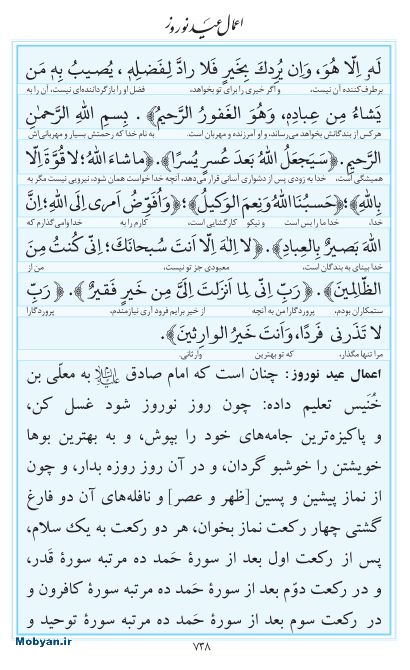 اعمال عید نوروز
لَهُ اِلّا هُوَ، وَاِن يُرِدكَ بِخَيرٍ فَلا رادَّ لِفَضلِهِ، يُصيبُ بِهِ مَن
برطرف‌کننده آن نیست، و اگر خیری را برای تو بخواهد، فضل او را بازگرداننده‌ای نیست، آن را به
يَشاءُ مِن عِبادِهِ، وَهُوَ الغَفورُ الرَّحيمُ﴾. بِسمِ اللهِ الرَّحمٰنِ
هرکس از بندگانش بخواهد می‌رساند، و او آمرزنده و مهربان است. به نام خدا که رحمتش بسیار و مهربانی‌اش
الرَّحيمِ. ﴿سَيَجعَلُ اللهُ بَعدَ عُسرٍ يُسرًا﴾. ﴿ماشاءَ اللهُ؛ لا قُوَّةَ اِلّا
همیشگی است، خدا به زودی پس از دشواری آسانی قرار می‌دهد، آنچه خدا خواست همان شود، نیرویی نیست مگر به
بِاللهِ﴾؛ ﴿حَسبُنَا اللهُ وَنِعمَ الوَكيلُ﴾؛ ﴿وَاُفَوِّضُ اَمرى اِلَى اللهِ؛ اِنَّ
خدا، خدا ما را بس است و نیکو کارگشایی است، کارم را به خدا وامی‌گذارم که
اللهَ بَصيرٌ بِالعِبادِ﴾. ﴿لا اِلٰهَ اِلّا اَنتَ سُبحانَكَ؛ اِنّى كُنتُ مِنَ
خدا بینای به بندگان است، معبودی جز تو نیست، من از
الظّالِمينَ﴾. ﴿رَبِّ اِنّى لِما اَنزَلتَ اِلَىَّ مِن خَيرٍ فَقيرٌ﴾. ﴿رَبِّ
ستمکاران بودم، پروردگارا من به آنچه از خیر برایم فرود آری نیازمندم، پروردگارا
لا تَذَرنى فَردًا، وَاَنتَ خَيرُ الوارِثينَ﴾.
مرا تنها مگذار، که تو بهترین وارثانی.
اعمال عید نوروز: چنان است که امام صادق علیه‌السلام به معلّی بن
خُنَیس تعلیم داده: چون روز نوروز شود غسل کن،
و پاکیزه‌ترین جامه‌های خود را بپوش، و به بهترین بوها
خویشتن را خوشبو گردان، و در آن روز روزه بدار، و چون
از نماز پیشین و پسین [ظهر و عصر] و نافله‌های آن دو فارغ
گشتی چهار رکعت نماز بخوان، هر دو رکعت به یک سلام،
پس از رکعت اول بعد از سورهٔ حَمد ده مرتبه سورهٔ قدر،
و در رکعت دوّم بعد از سورهٔ حَمد ده مرتبه سورهٔ کافرون و
در رکعت سوم بعد از سورهٔ حَمد ده مرتبه سورهٔ توحید و
۷۳۸
Mobyan.ir